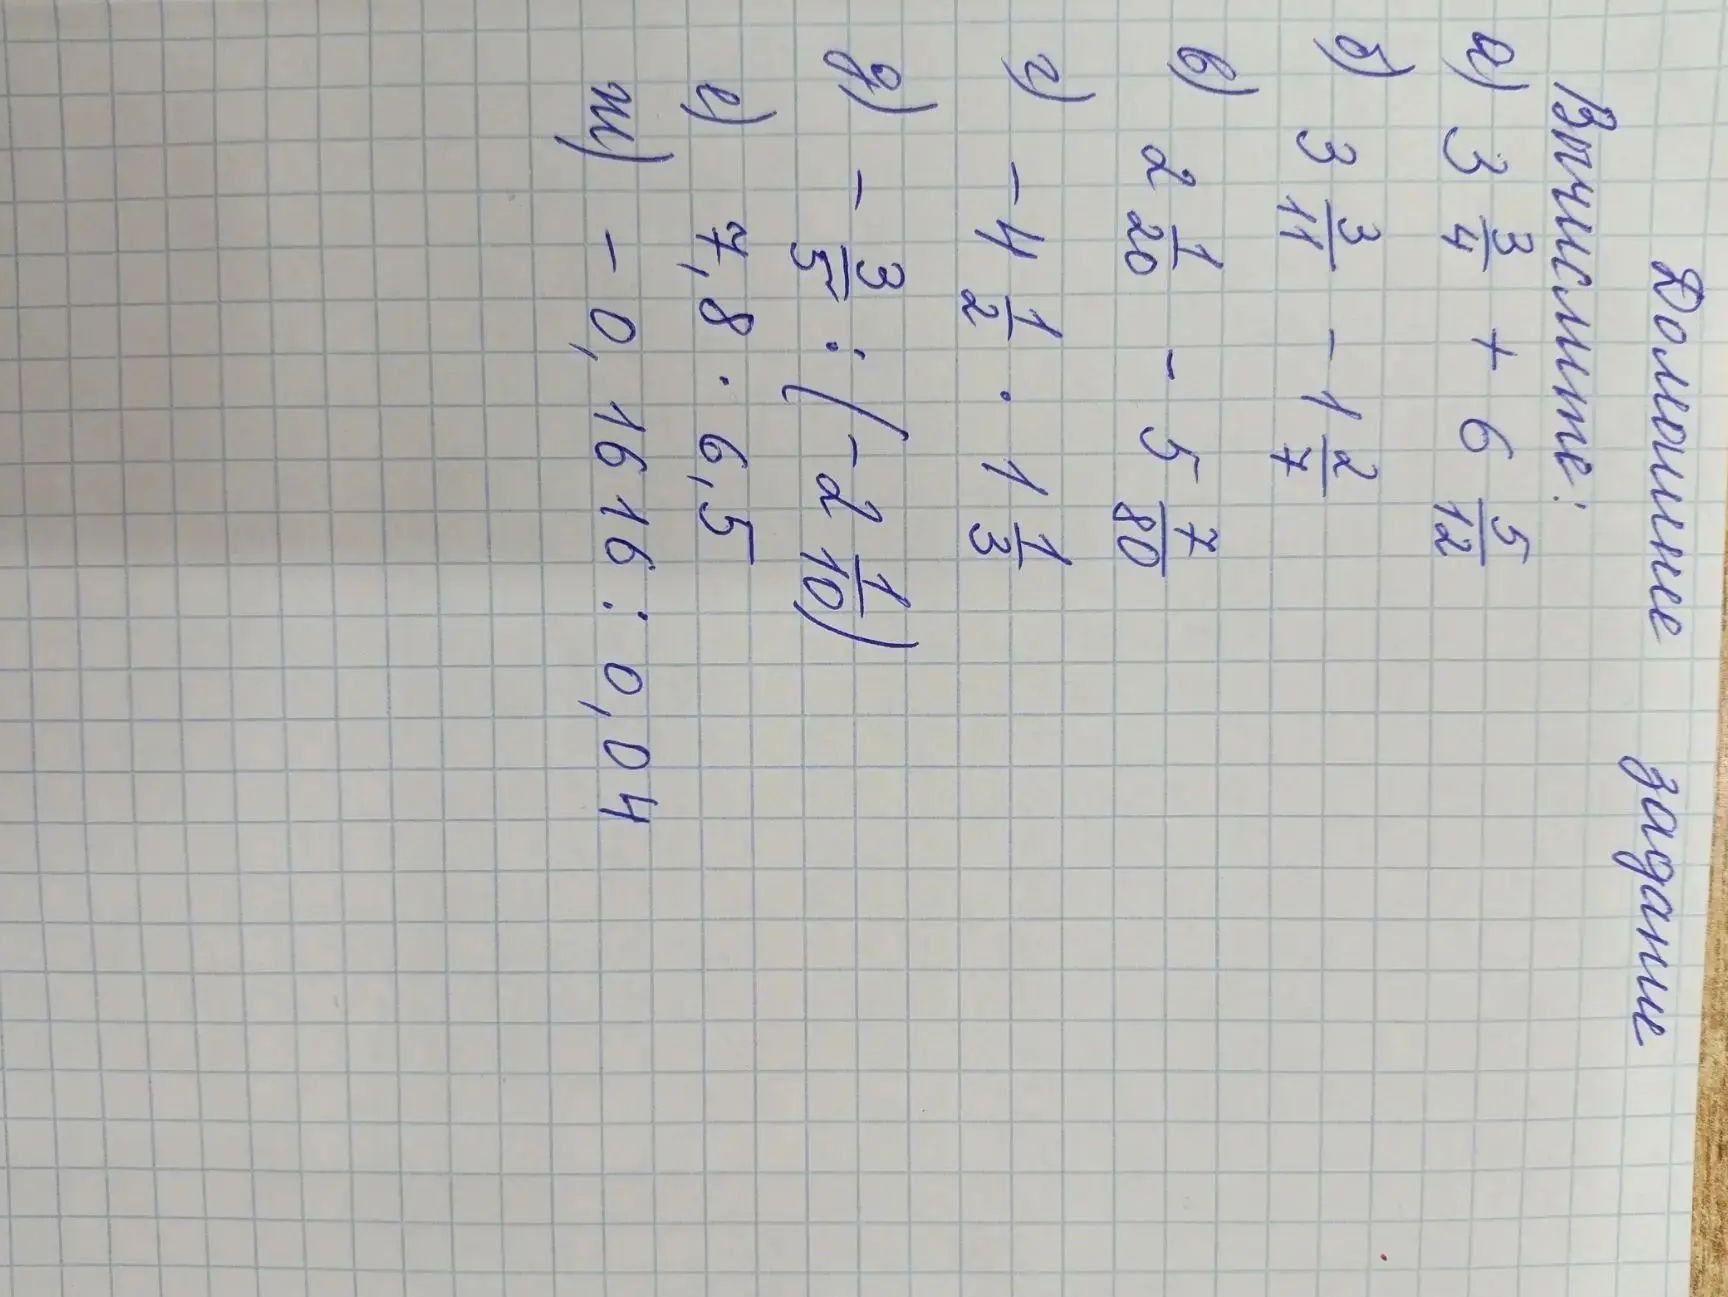 Домашнее задание
Вычислите:
а) 3 3/4 + 6 5/12
б) 3 3/11 - 1 2/7
в) 2 1/20 - 5 7/80
г) - 4 1/2 · 1 1/3
д) - 3/5 : (- 2 1/10)
е) 7,8 · 6,5
ж) - 0,1616 : 0,04